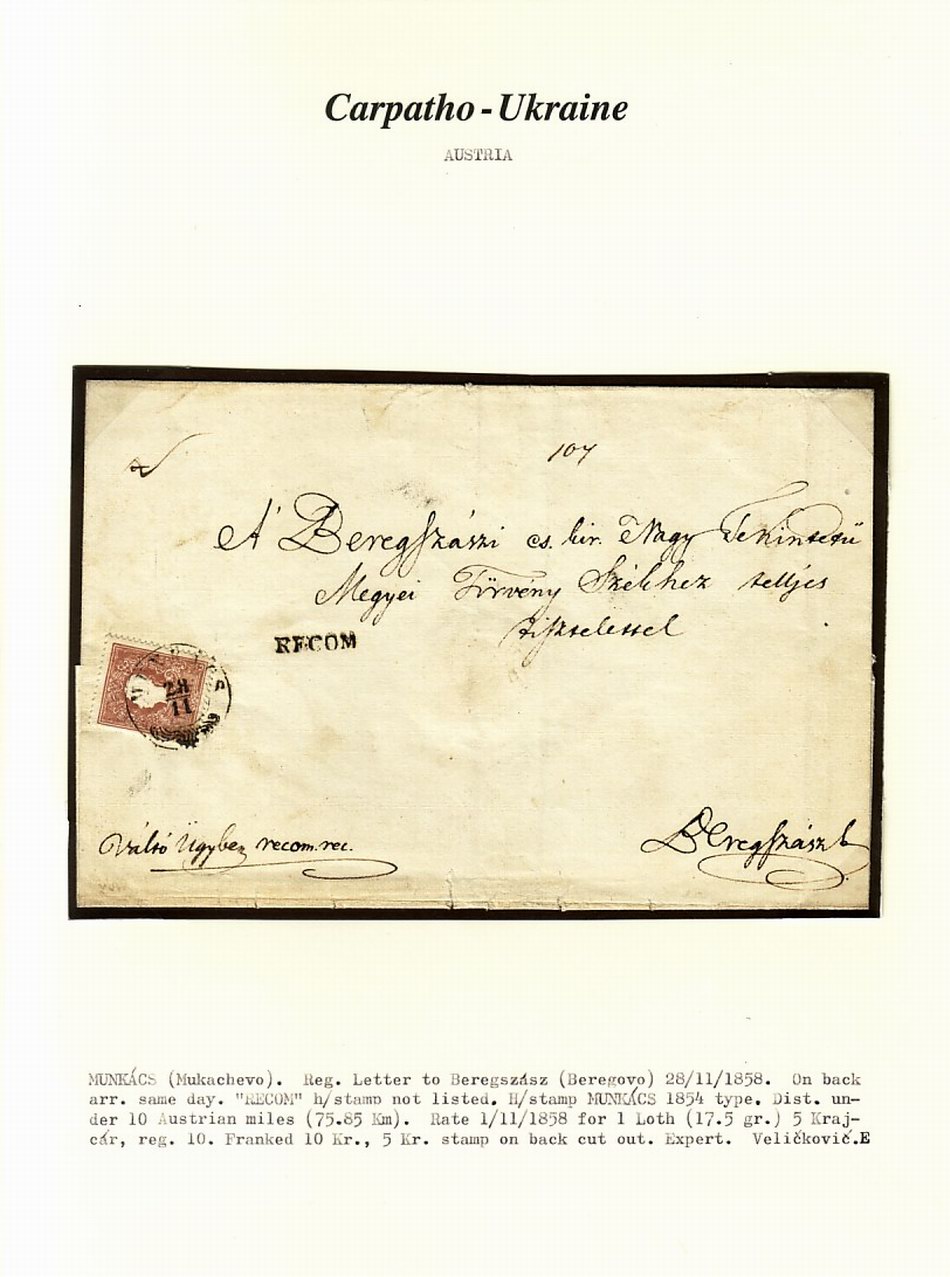 Carpatho-Ukraine
AUSTRIA
107
Á Beregſzászi cs. kir. Nagy Tekintetü
Megyei Törvény Székhez telljes
tiſztelettel
RECOM
28
11
Váltó Ügyben recom. rec.
Beregſzász
MUNKÁCS (Mukachevo). Reg. Letter to Beregszász (Beregovo) 28/11/1858. On back
arr. same day. "RECOM" h/stamp not listed. H/stamp MUNKÁCS 1854 type. Dist. un-
der 10 Austrian miles (75.85 Km). Rate 1/11/1858 for 1 Loth (17.5 gr.) 5 Kraj-
cár, reg. 10. Franked 10 Kr., 5 Kr. stamp on back cut out. Expert. Veličkovič.E